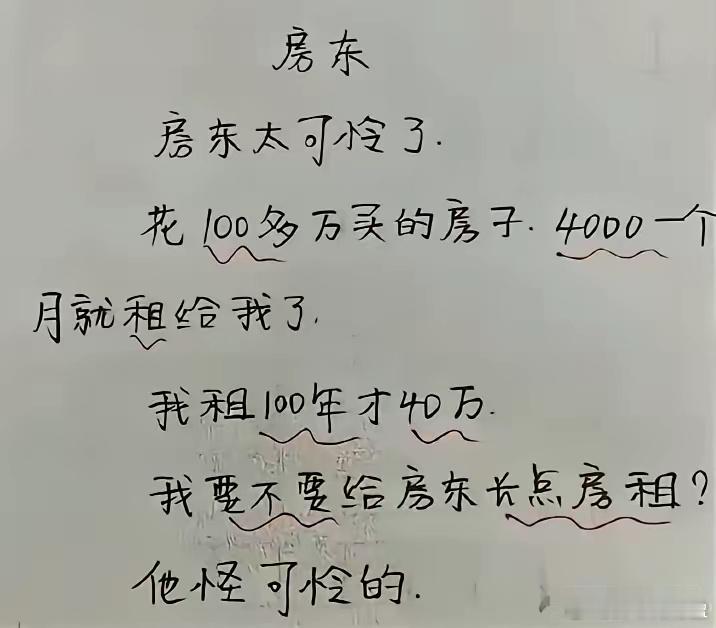 房东
房东太可怜了.
花100多万买的房子.4000一个
月就租给我了.
我租100年才40万.
我要不要给房东长点房租?
他怪可怜的.